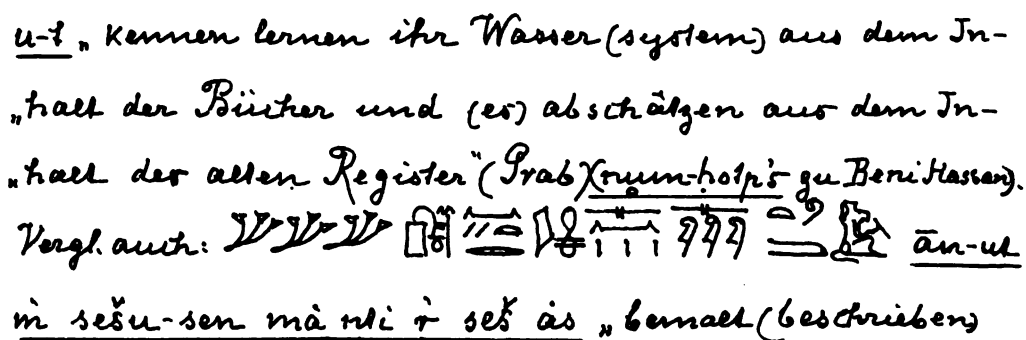 u-t „kennen lernen ihr Wasser (system) aus dem In-
„halt der Bücher und (es) abschätzen aus dem In-
„halt des alten Registers“ (Grab Xnum-ḥotp's zu Beni Hassan).
Vergl. auch: ān-ut
ṁ sešu-sen mȧ nti ṙ seš ȧs „bemalt (beschrieben)